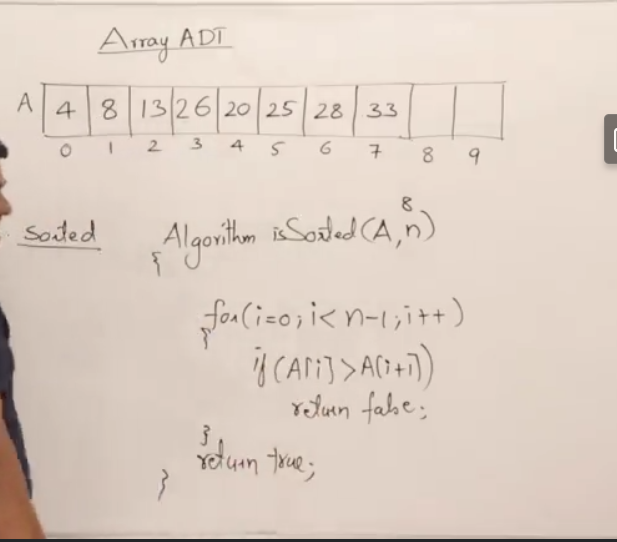 Array ADT
A 4 8 13 26 20 25 28 33
0 1 2 3 4 5 6 7 8 9
8
Sorted Algorithm isSorted(A,n)
{
for(i=0;i<n-1;i++)
{
if(A[i]>A[i+1])
return false;
}
return true;
}